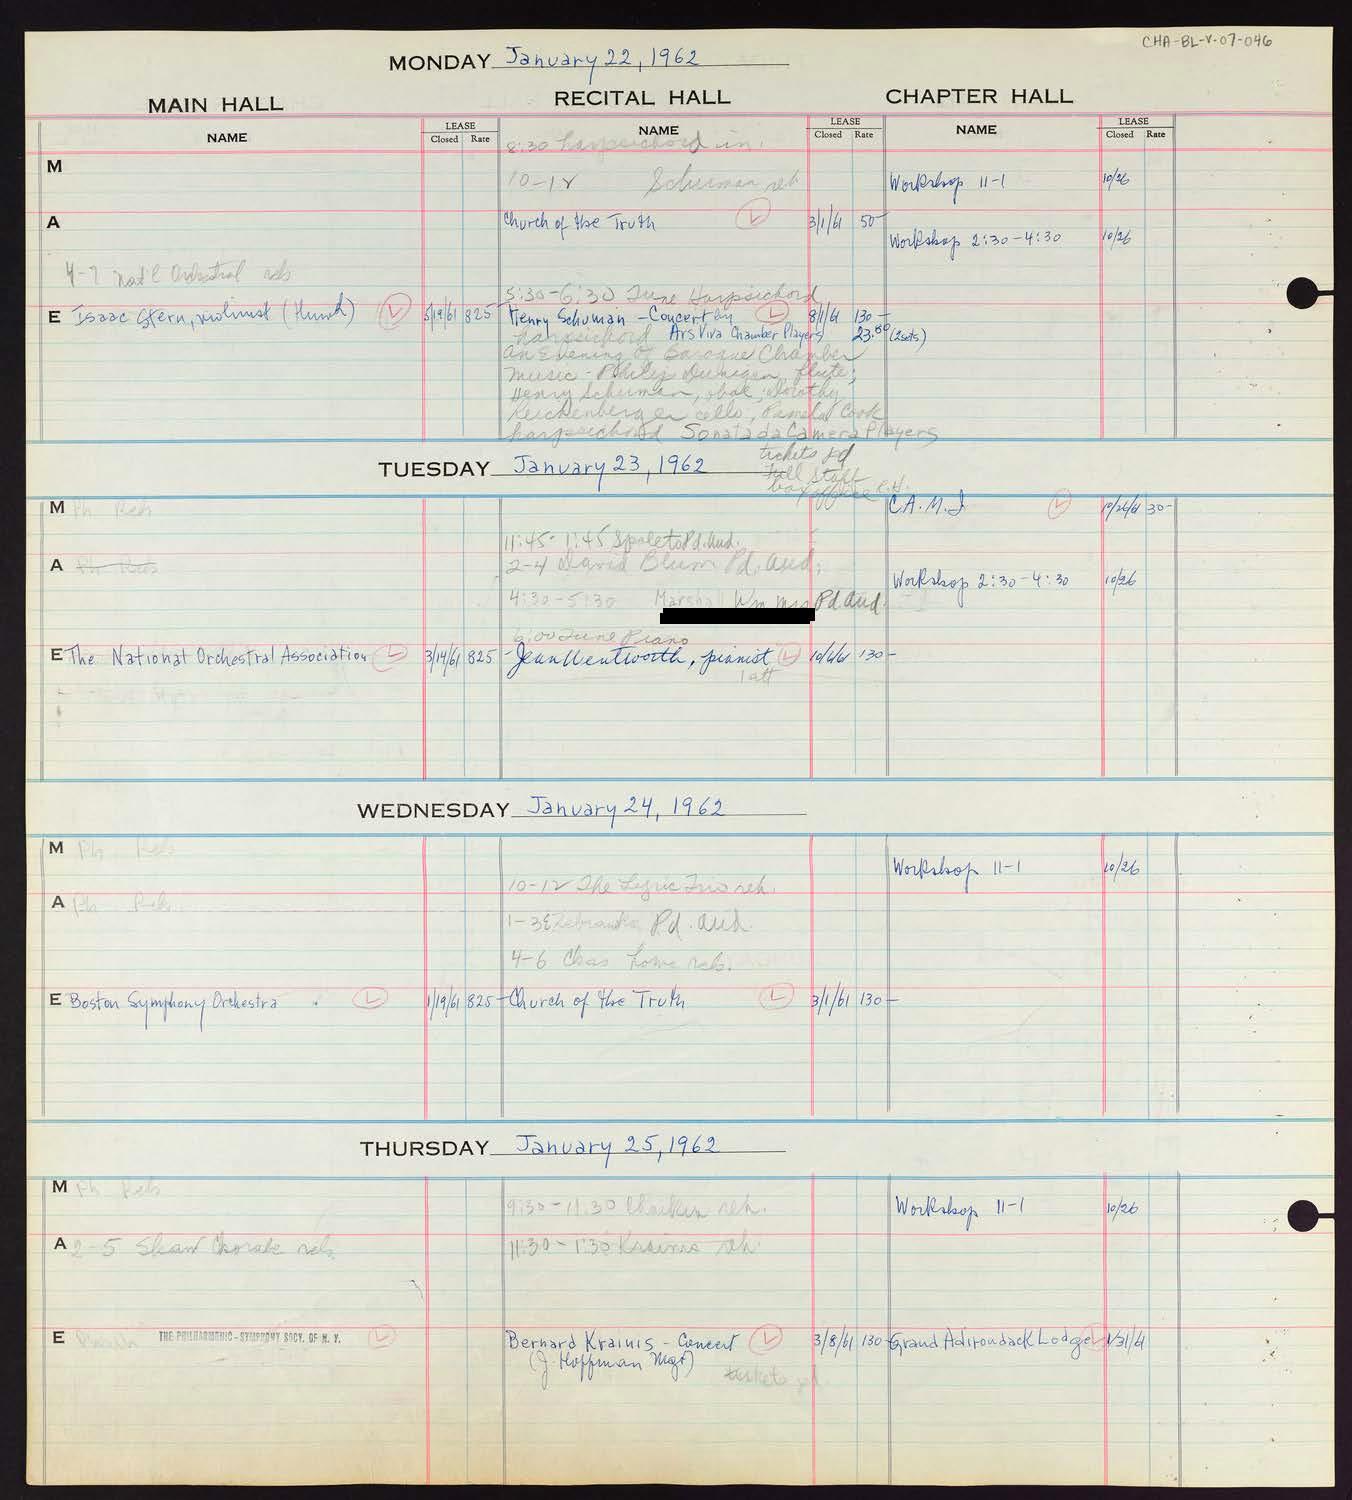 CHA-BL-V-07-046
MONDAY January 22, 1962
MAIN HALL RECITAL HALL CHAPTER HALL
NAME LEASE Closed Rate NAME LEASE Closed Rate NAME LEASE Closed Rate
8:30 harpsichord in.
M
10-12 Schuman reh
Workshop 11-1 10/26
A
Church of the Truth L 3/1/61 50-
Workshop 2:30-4:30 10/26
4-7 Nat'l Orchestral reh
5:30-6:30 Tune Harpsichord
E Isaac Stern, violinist (Hurok) L 5/19/61 825-
Henry Schuman - Concert by L 8/1/61 130-
harpsichord Ars Viva Chamber Players 23.80 (2 sets)
An Evening of Baroque Chamber
music - Philip Dunigan, flute;
Henry Schuman, oboe; Dorothy
Reichenberger cello; Pamela Cook
harpsichord Sonata da Camera Players
tickets pd
TUESDAY January 23, 1962
Full staff
box office R.H.
M Ph Reh
C.A.M.I L 10/26/61 30-
11:45-1:45 Spoleto Pd. Aud.
A Ph Reh
2-4 David Blum Pd. Aud;
Workshop 2:30-4:30 10/26
4:30-5:30 Marshall Pd. Aud.
6:00 Tune Piano
E The National Orchestral Association L 3/14/61 825-
Jean Wentworth, pianist L 10/6/61 130-
1 att
WEDNESDAY January 24, 1962
M Ph Reh
Workshop 11-1 10/26
10-12 The Lyric Trio reh.
A Ph Reh.
1-3 Pd. Aud.
4-6 Chas reh.
E Boston Symphony Orchestra L 1/19/61 825-
Church of the Truth L 3/1/61 130-
THURSDAY January 25, 1962
M Ph Reh
9:30-11:30 Chaikin reh.
Workshop 11-1 10/26
A 2-5 Shaw Chorale reh.
11:30-1:30 Krainis reh.
E THE PHILHARMONIC-SYMPHONY SOCY. OF N. Y. L
Bernard Krainis - Concert L 3/8/61 130-
Grand Adirondack Lodge L 1/31/61
(J. Hoffman Mgr)
tickets pd.